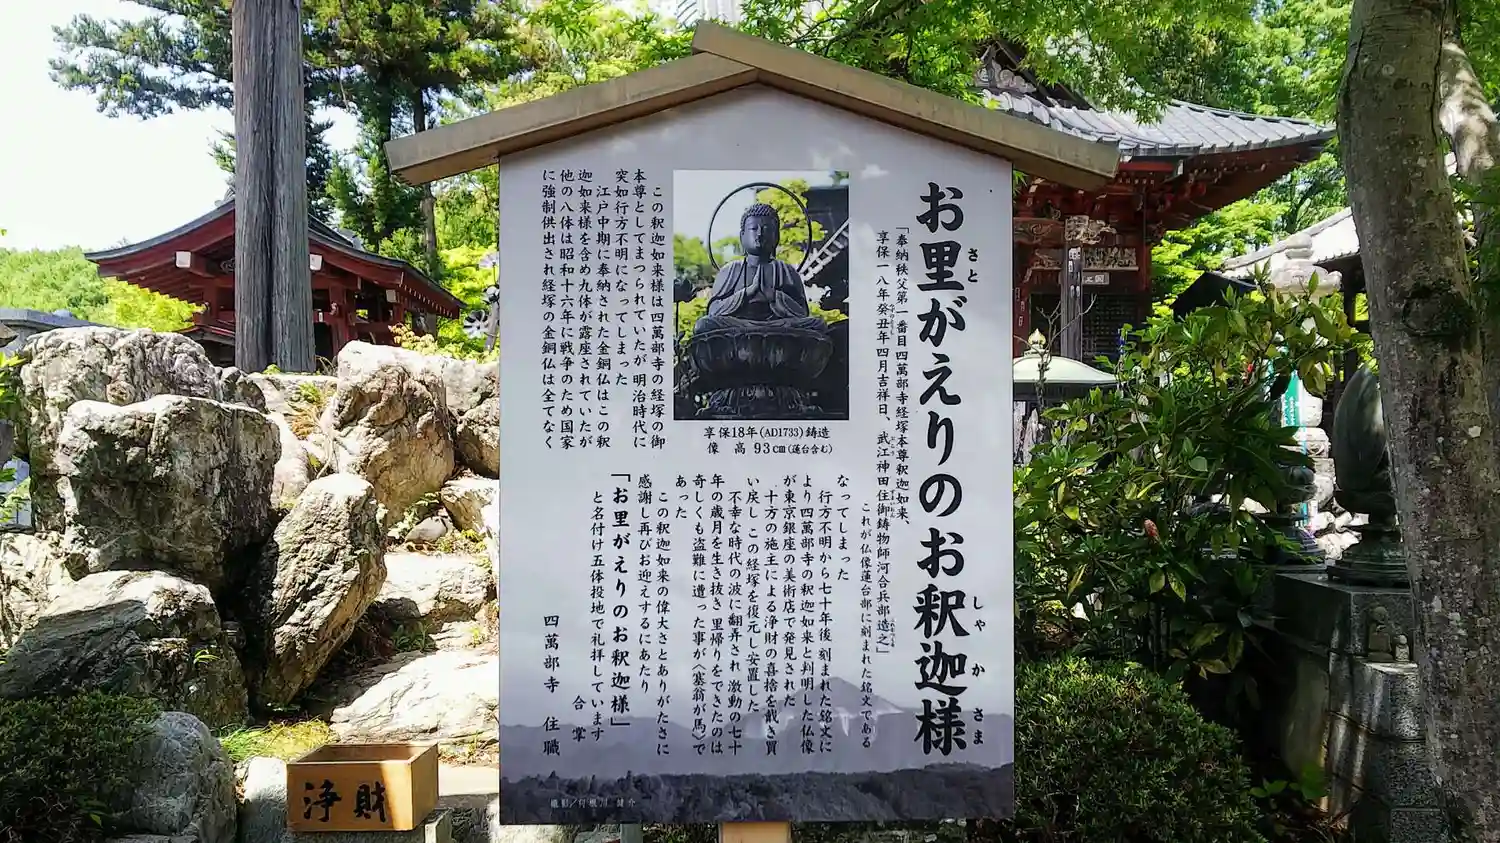 お里がえりのお釈迦様
さと
しゃ か さま
「奉納秩父第一番目四萬部寺経塚本尊釈迦如来、
享保一八年癸丑年四月吉祥日、武江神田住御鋳物師河合兵部造之」
これが仏像蓮台部に刻まれた銘文である
享保18年(AD1733)鋳造
像 高 93cm(蓮台含む)
この釈迦如来様は四萬部寺の経塚の御
本尊としてまつられていたが 明治時代に
突如行方不明になってしまった
江戸中期に奉納された金銅仏はこの釈
迦如来様を含め九体が露座されていたが
他の八体は昭和十六年に戦争のため国家
に強制供出され経塚の金銅仏は全てなく
なってしまった
行方不明から七十年後 刻まれた銘文に
より四萬部寺の釈迦如来と判明した仏像
が東京銀座の美術店で発見された
十方の施主による浄財の喜捨を戴き買
い戻し この経塚を復元し安置した
不幸な時代の波に翻弄され 激動の七十
年の歳月を生き抜き 里帰りをできたのは
奇しくも盗難に遭った事が〈塞翁が馬〉で
あった
この釈迦如来の偉大さとありがたさに
感謝し再びお迎えするにあたり
「お里がえりのお釈迦様」
と名付け五体投地で礼拝しています
合 掌
四萬部寺 住職
浄財